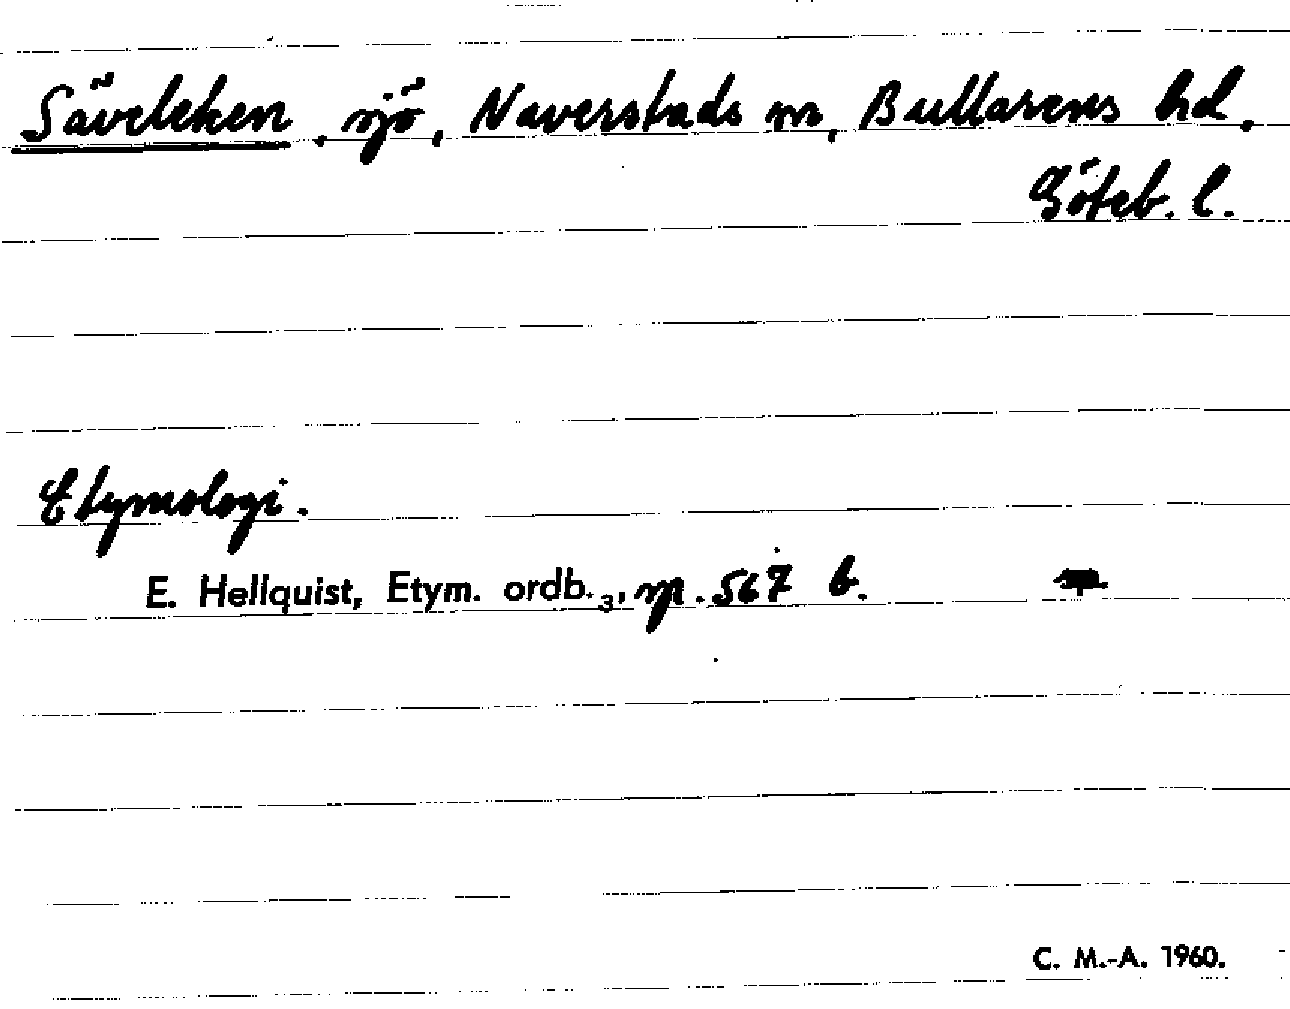 Säveleken, sjö, Naverstads sn, Bullarens hd,
Göteb. l.
Etymologi.
E. Hellquist, Etym. ordb.₃, sp. 567 b.
C. M.-A. 1960.